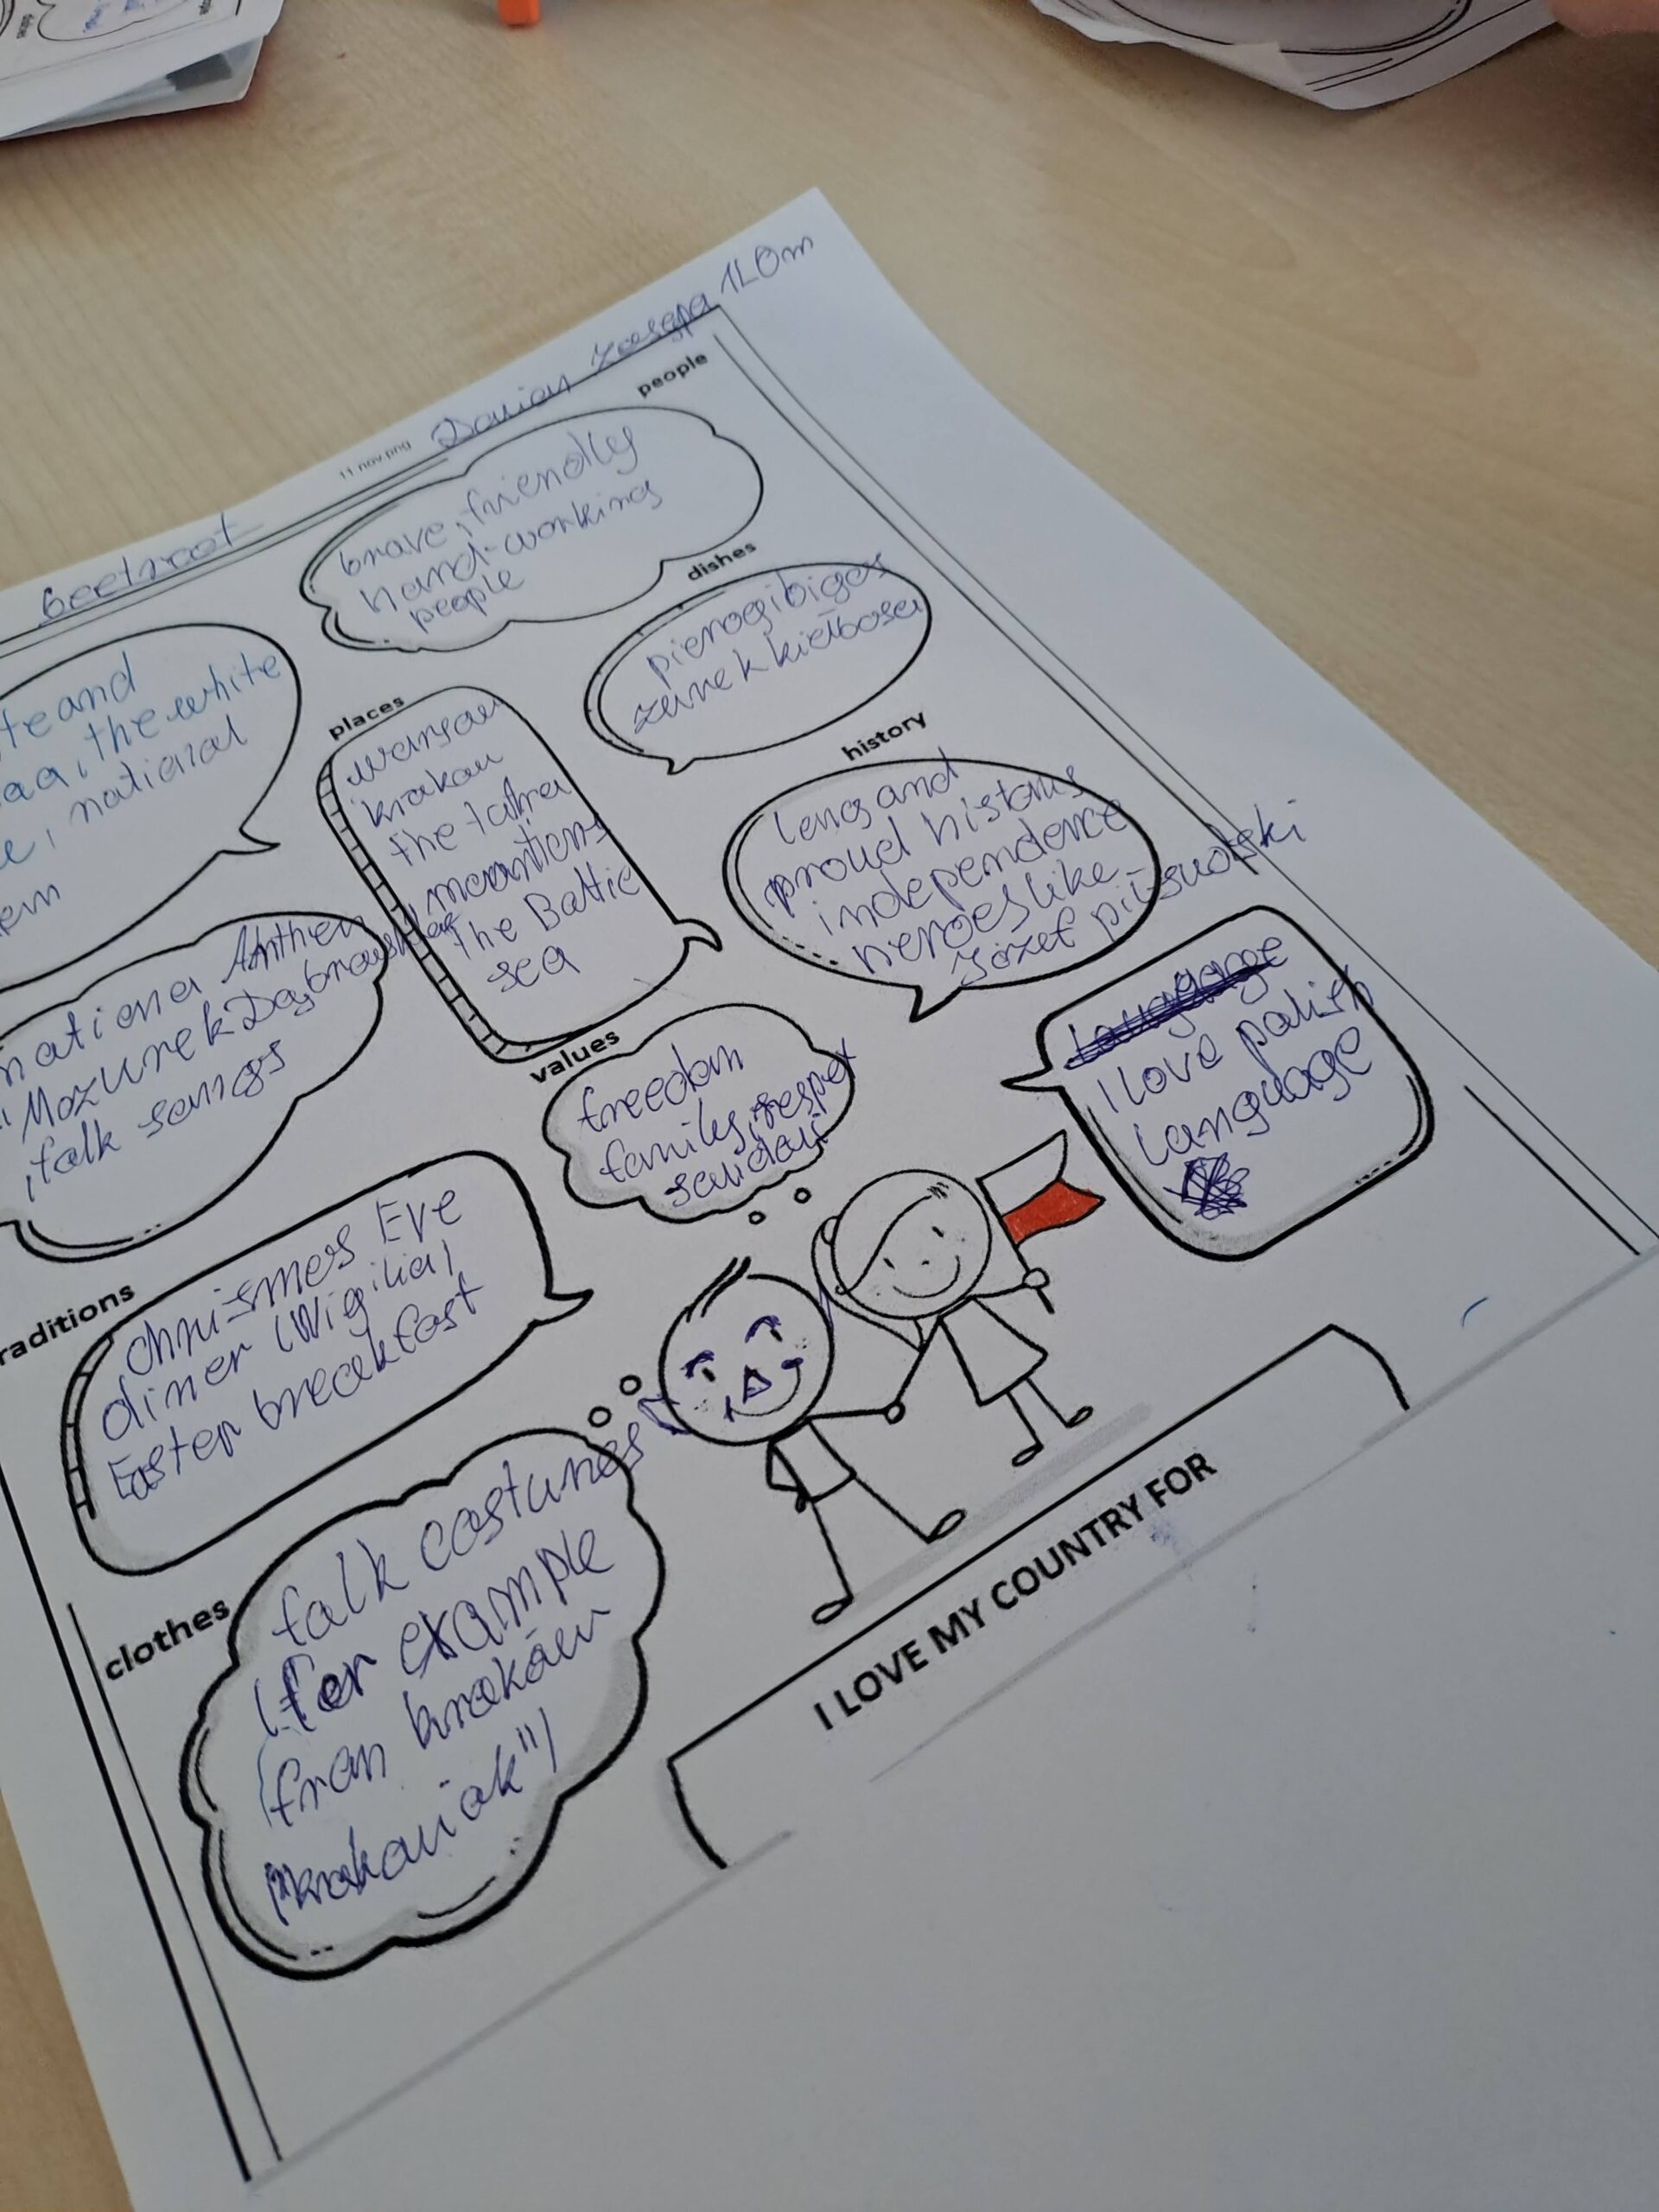 11 nov.png
1LOm
beetroot
people
brave, friendly
hard-working
people
dishes
pierogi bigos
żurek kiełbasa
te and
the white
, national
places
warsaw
krakow
the tatra
mountions
the Baltic
sea
history
long and
proud history
independence
heroes like
Józef piłsudski
nationa Anthem
"Mazurek Dąbrowskiego
, folk songs
values
freedom
family, respet
I love polish
language
raditions
Chrismes Eve
dinner (Wigilia)
Easter breakfast
clothes
folk costumes
(for example
from krakow
"krakowiak")
I LOVE MY COUNTRY FOR